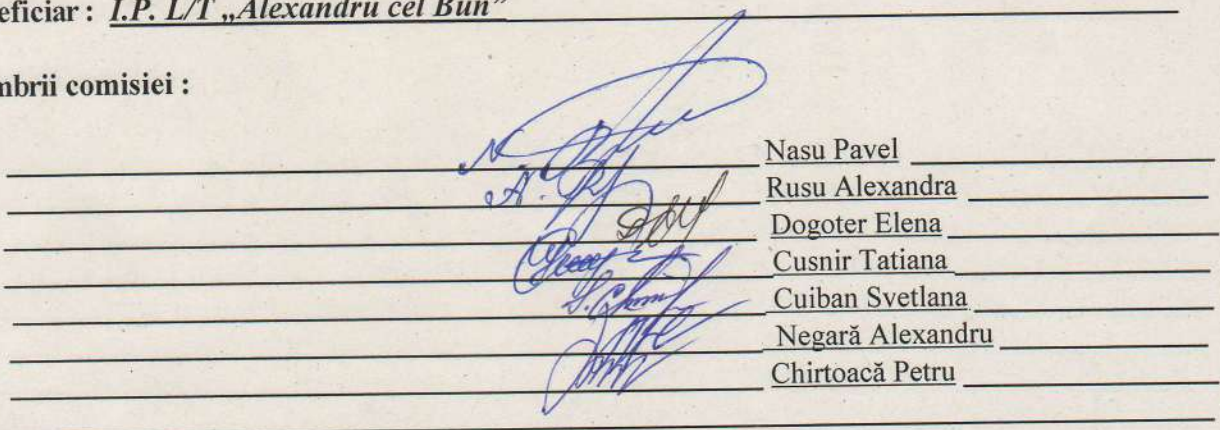 eficiar : I.P. L/T „Alexandru cel Bun”
mbrii comisiei :
Nasu Pavel
Rusu Alexandra
Dogoter Elena
Cusnir Tatiana
Cuiban Svetlana
Negară Alexandru
Chirtoacă Petru